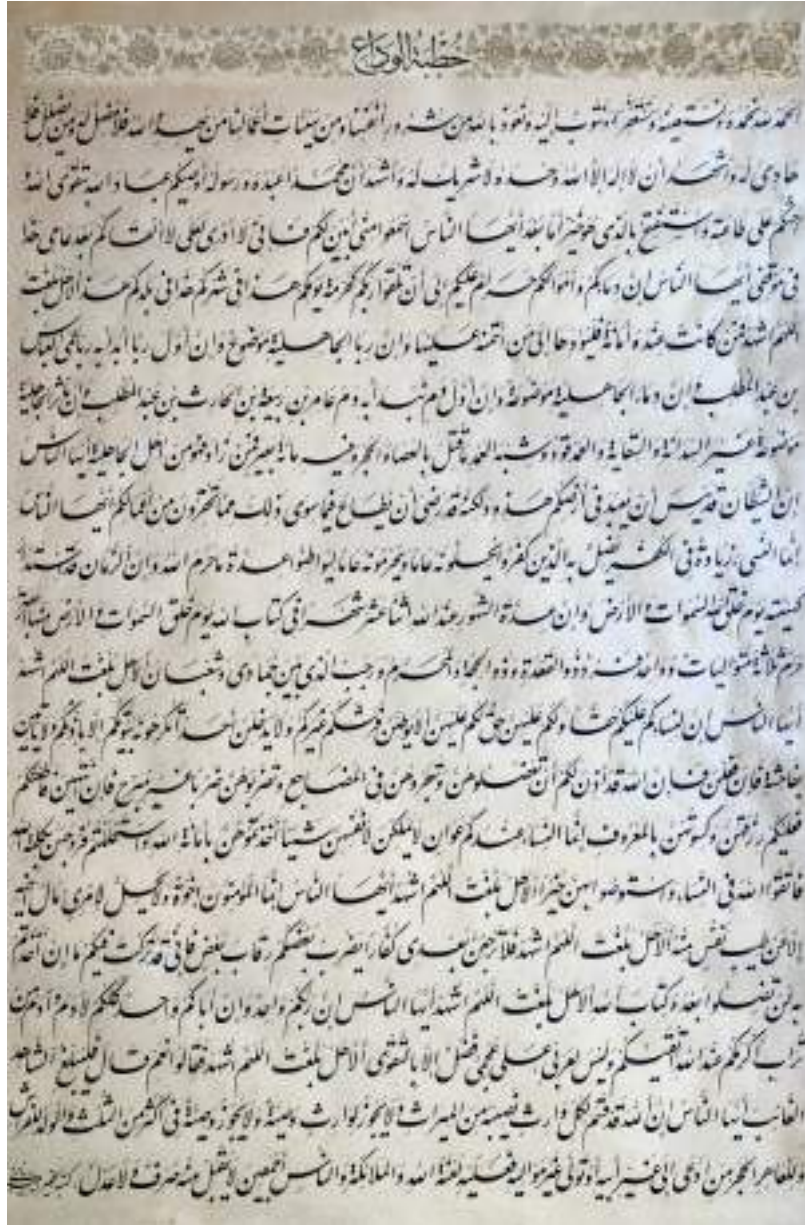 خطبة الوداع
الحمد لله نحمده ونستعينه ونستغفره ونتوب إليه ونعوذ بالله من شرور أنفسنا ومن سيئات أعمالنا من يهد الله فلا مضل له ومن يضلل فلا
هادي له وأشهد أن لا إله إلا الله وحده لا شريك له وأشهد أن محمدا عبده ورسوله أوصيكم عباد الله بتقوى الله
وأحثكم على طاعته وأستفتح بالذي هو خير أما بعد أيها الناس اسمعوا مني أبين لكم فإني لا أدري لعلي لا ألقاكم بعد عامي هذا
في موقفي أيها الناس إن دماءكم وأموالكم حرام عليكم إلى أن تلقوا ربكم كحرمة يومكم هذا في شهركم هذا في بلدكم هذا ألا هل بلغت
اللهم اشهد فمن كانت عنده أمانة فليؤدها إلى من ائتمنه عليها وإن ربا الجاهلية موضوع وإن أول ربا أبدأ به ربا عمي العباس
بن عبد المطلب وإن دماء الجاهلية موضوعة وإن أول دم نبدأ به دم عامر بن ربيعة بن الحارث بن عبد المطلب وإن مآثر الجاهلية
موضوعة غير السدانة والسقاية والعمد قود وشبه العمد ما قتل بالعصا والحجر وفيه مائة بعير فمن زاد فهو من أهل الجاهلية أيها الناس
إن الشيطان قد يئس أن يعبد في أرضكم هذه ولكنه قد رضي أن يطاع فيما سوى ذلك مما تحقرون من أعمالكم أيها الناس
إنما النسيء زيادة في الكفر يضل به الذين كفروا يحلونه عاما ويحرمونه عاما ليواطئوا عدة ما حرم الله وإن الزمان قد استدار
كهيئته يوم خلق الله السموات والأرض وإن عدة الشهور عند الله اثنا عشر شهرا في كتاب الله يوم خلق السموات والأرض منها أربعة
حرم ثلاثة متواليات وواحد فرد ذو القعدة وذو الحجة والمحرم ورجب الذي بين جمادى وشعبان ألا هل بلغت اللهم اشهد
أيها الناس إن لنسائكم عليكم حقا ولكم عليهن حق لكم عليهن ألا يوطئن فرشكم غيركم ولا يدخلن أحدا تكرهونه بيوتكم إلا بإذنكم ولا يأتين
بفاحشة فإن فعلن فإن الله قد أذن لكم أن تعضلوهن وتهجروهن في المضاجع وتضربوهن ضربا غير مبرح فإن انتهين وأطعنكم
فعليكم رزقهن وكسوتهن بالمعروف إنما النساء عندكم عوان لا يملكن لأنفسهن شيئا أخذتموهن بأمانة الله واستحللتم فروجهن بكلمة الله
فاتقوا الله في النساء واستوصوا بهن خيرا ألا هل بلغت اللهم اشهد أيها الناس إنما المؤمنون إخوة ولا يحل لامرئ مال أخيه
إلا عن طيب نفس منه ألا هل بلغت اللهم اشهد فلا ترجعن بعدي كفارا يضرب بعضكم رقاب بعض فإني قد تركت فيكم ما إن أخذتم
به لن تضلوا بعده كتاب الله ألا هل بلغت اللهم اشهد أيها الناس إن ربكم واحد وإن أباكم واحد كلكم لآدم وآدم من
تراب أكرمكم عند الله أتقيكم وليس لعربي على عجمي فضل إلا بالتقوى ألا هل بلغت اللهم اشهد فقالوا نعم قال فليبلغ الشاهد
الغائب أيها الناس إن الله قد قسم لكل وارث نصيبه من الميراث ولا يجوز لوارث وصية ولا يجوز وصية في أكثر من الثلث والولد للفراش
وللعاهر الحجر من ادعى إلى غير أبيه أو تولى غير مواليه فعليه لعنة الله والملائكة والناس أجمعين لا يقبل منه صرف ولا عدل